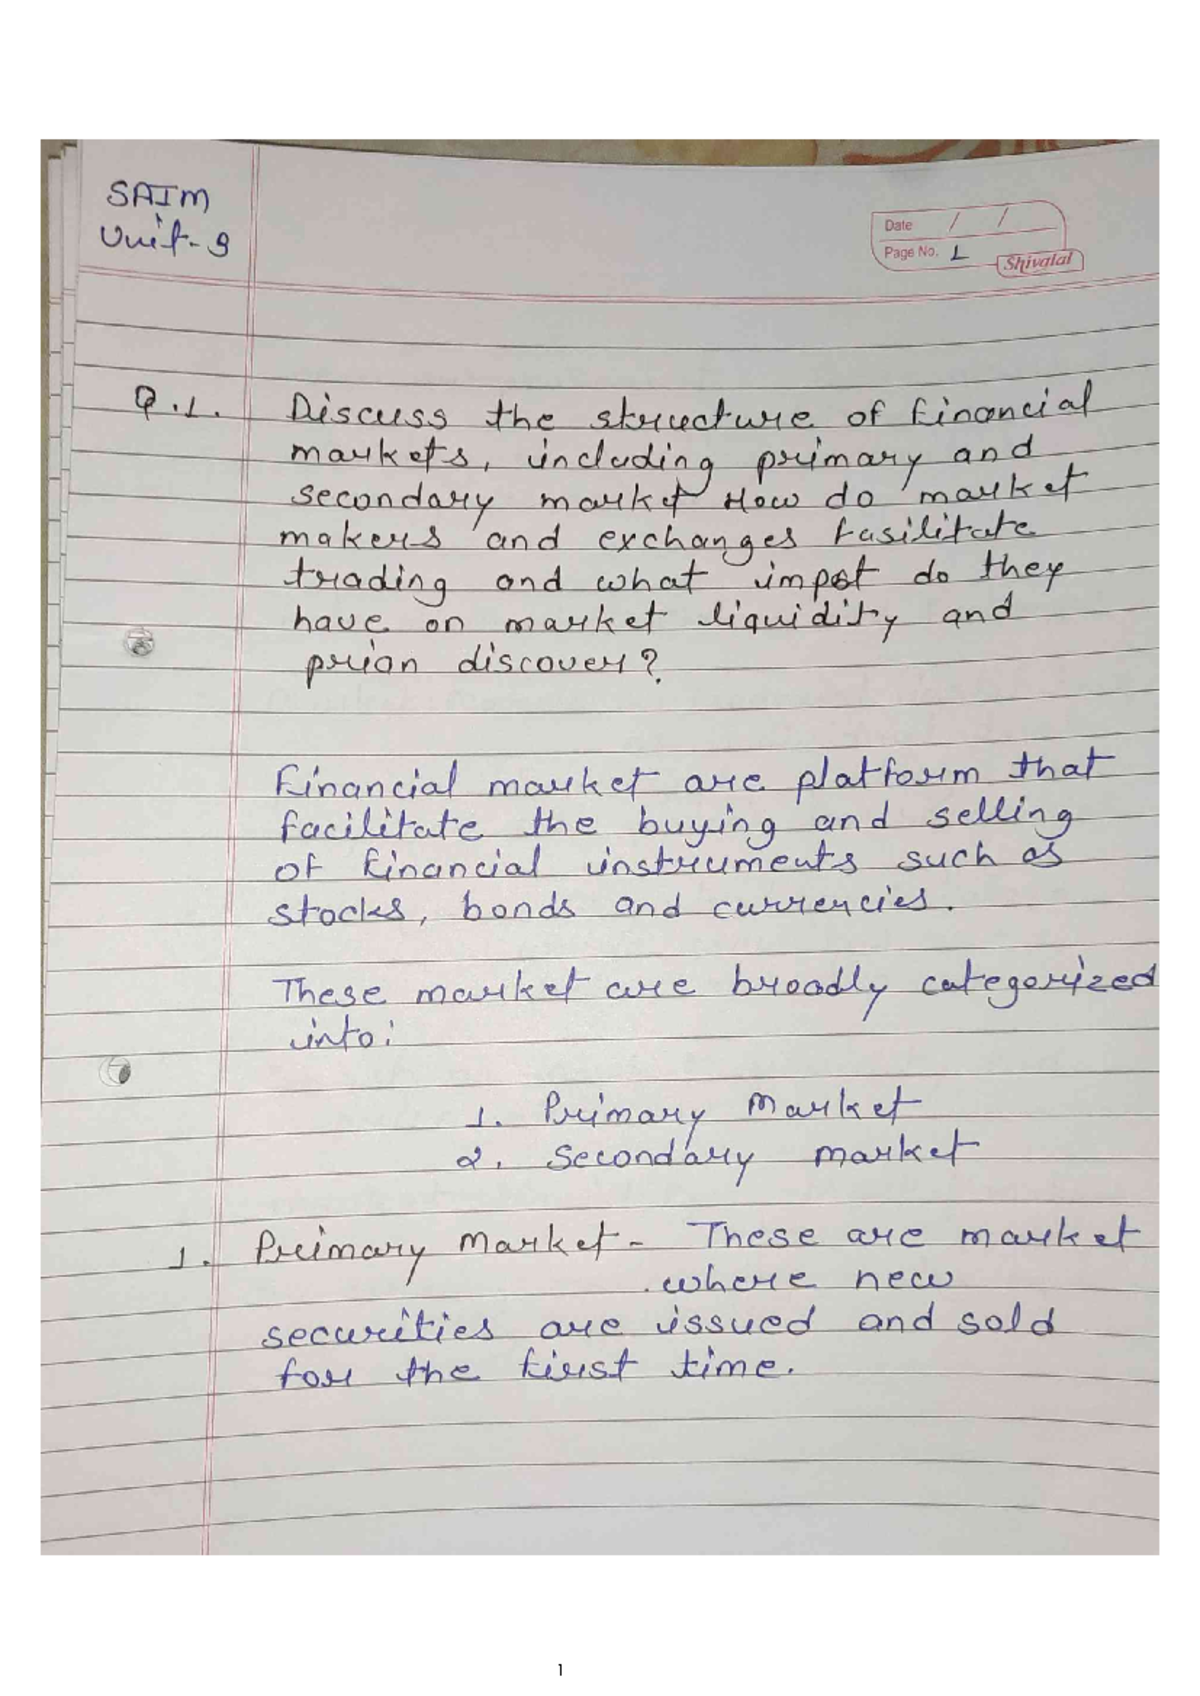 SAIM
Unit-9
Date / /
Page No. 1
Shivalal
Q.1. Discuss the structure of financial
markets, including primary and
secondary market How do market
makers and exchanges fasilitate
trading and what impct do they
have on market liquidity and
prion discover?
Financial market are platform that
facilitate the buying and selling
of financial instruments such as
stocks, bonds and currencies.
These market are broadly categorized
into:
1. Primary Market
2. Secondary market
1. Primary Market - These are market
where new
securities are issued and sold
for the first time.
1